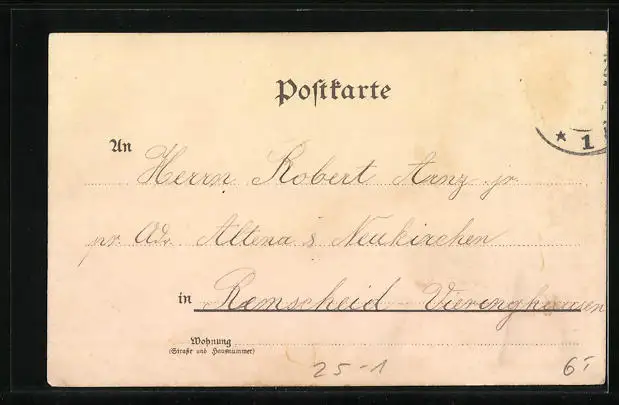 Postkarte
* 1
An Herrn Robert Arnz jr.
pr. Adr. Altena & Neukirchen
in Remscheid - Vieringhausen
Wohnung
(Straße und Hausnummer)
25-1
6